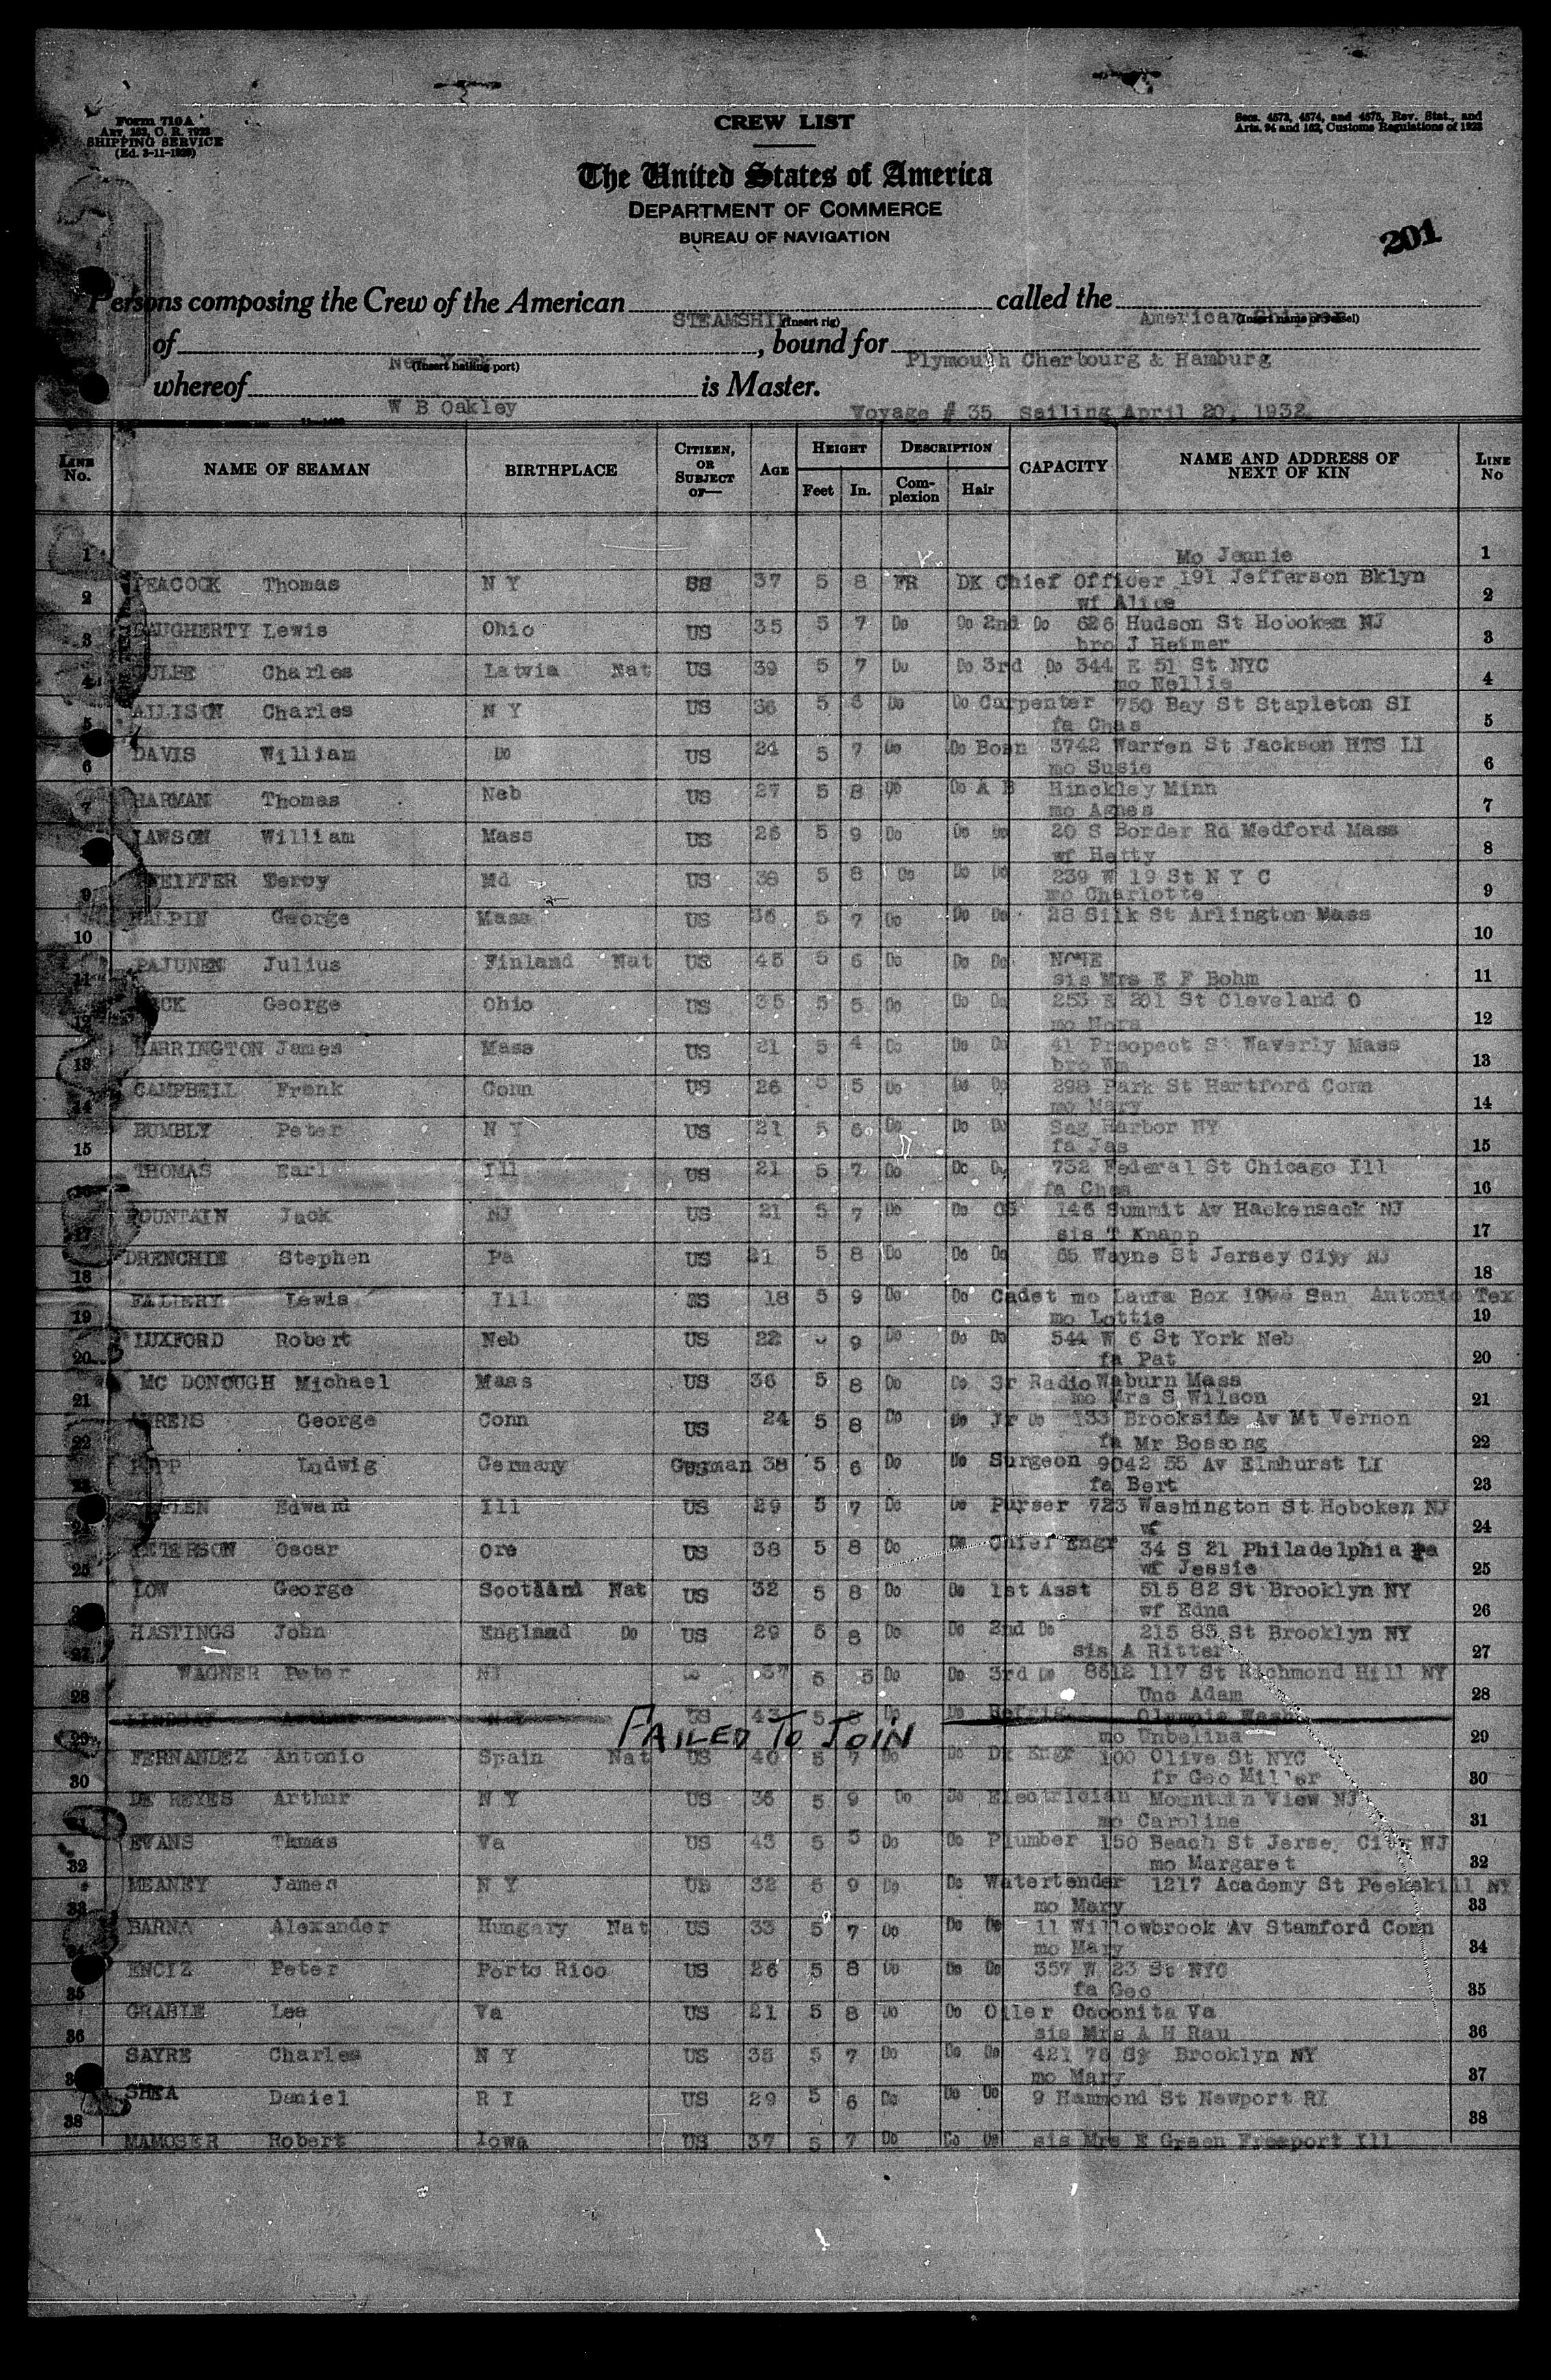 Form 710A
Art. 182, C. R. 1923
SHIPPING SERVICE
(Ed. 3-11-1929)
CREW LIST
Secs. 4573, 4574, and 4575, Rev. Stat., and
Arts. 94 and 162, Customs Regulations of 1923
The United States of America
DEPARTMENT OF COMMERCE
BUREAU OF NAVIGATION
201
Persons composing the Crew of the American STEAMSHIP (Insert rig) called the American Shipper (Insert name of vessel)
of New York (Insert hailing port), bound for Plymouth Cherbourg & Hamburg
whereof W B Oakley is Master.
Voyage # 35 Sailing April 20, 1932
LINE No. NAME OF SEAMAN BIRTHPLACE CITIZEN, OR SUBJECT OF— AGE HEIGHT Feet In. DESCRIPTION Complexion Hair CAPACITY NAME AND ADDRESS OF NEXT OF KIN LINE No
1 Mo Jennie 1
PEACOCK Thomas N Y 37 5 8 FR DK Chief Officer 191 Jefferson Bklyn
2 wf Alice 2
DAUGHERTY Lewis Ohio US 35 5 7 Do Do 2nd Do 626 Hudson St Hoboken NJ
3 bro J Heimer 3
Charles Latvia Nat US 39 5 7 Do Do 3rd Do 344 E 51 St NYC
4 mo Nellie 4
ALLISON Charles N Y US 36 5 Do Do Carpenter 750 Bay St Stapleton SI
5 fa Chas 5
DAVIS William Do US 24 5 7 Do Do Bosn 3742 Warren St Jackson HTS LI
6 mo Susie 6
HARMAN Thomas Neb US 27 5 8 Do Do A B Hinckley Minn
7 mo Agnes 7
LAWSON William Mass US 26 5 9 Do Do Do 20 S Border Rd Medford Mass
wf Hetty 8
PFEIFFER Md US 38 5 8 Do Do Do 239 W 19 St N Y C
9 mo Charlotte 9
HALPIN George Mass US 36 5 7 Do Do Do 28 Silk St Arlington Mass
10 10
PAJUNEN Julius Finland Nat US 45 5 6 Do Do Do NONE
11 sis Mrs E F Bohm 11
George Ohio US 35 5 5 Do Do Do 253 E 201 St Cleveland O
12 mo Nora 12
HARRINGTON James Mass US 21 5 4 Do Do Do 41 Prsopect St Waverly Mass
13 bro Wm 13
CAMPBELL Frank Conn US 26 5 5 Do Do Do 298 Park St Hartford Conn
14 mo Mary 14
BUMBLY Peter N Y US 21 5 6 Do Do Do Sag Harbor NY
15 fa Jas 15
THOMAS Earl Ill US 21 5 7 Do Do Do 732 Federal St Chicago Ill
16 fa Chas 16
FOUNTAIN Jack NJ US 21 5 7 Do Do OS 146 Summit Av Hackensack NJ
17 sis T Knapp 17
DRENCHIE Stephen Pa US 21 5 8 Do Do Do 65 Wayne St Jersey City NJ
18 18
FALIERY Lewis Ill US 18 5 9 Do Do Cadet mo Laura Box San Antonio Tex
19 mo Lottie 19
LUXFORD Robert Neb US 22 9 Do Do Do 544 W 6 St York Neb
20 fa Pat 20
MC DONOUGH Michael Mass US 36 5 8 Do Do Sr Radio Waburn Mass
21 mo Mrs S Wilson 21
AHRENS George Conn US 24 5 8 Do Do Jr Do 133 Brookside Av Mt Vernon
22 fa Mr Bossong 22
Ludwig Germany German 38 5 6 Do Do Surgeon 9042 55 Av Elmhurst LI
fa Bert 23
Edward Ill US 29 5 7 Do Do Purser 723 Washington St Hoboken NJ
24 wf 24
PETERSON Oscar Ore US 38 5 8 Do Do Chief Engr 34 S 21 Philadelphia Pa
25 wf Jessie 25
LOW George Scotland Nat US 32 5 8 Do Do 1st Asst 515 82 St Brooklyn NY
wf Edna 26
HASTINGS John England Do US 29 5 8 Do Do 2nd Do 215 85 St Brooklyn NY
27 sis A Ritter 27
WAGNER Peter NJ 37 5 5 Do Do 3rd Do 8612 117 St Richmond Hill NY
28 Unc Adam 28
LINDSAY Arthur N Y US 43 5 Do Do Refrig Olympia Wash
FAILED TO JOIN
29 mo Unbelina 29
FERNANDEZ Antonio Spain Nat US 40 5 7 Do Do Dk Engr 100 Olive St NYC
30 fr Geo Miller 30
DE REYES Arthur N Y US 36 5 9 Do Do Electrician Mountain View NJ
mo Caroline 31
EVANS Tkmas Va US 43 5 Do Do Plumber 150 Beach St Jersey City NJ
32 mo Margaret 32
MEANEY James N Y US 32 5 9 Do Do Watertender 1217 Academy St Peekskill NY
33 mo Mary 33
BARNA Alexander Hungary Nat US 33 5 7 Do Do Do 11 Willowbrook Av Stamford Conn
34 mo Mary 34
ENCIZ Peter Porto Rico US 26 5 8 Do Do Do 357 W 23 St NYC
35 fa Geo 35
GRABLE Lee Va US 21 5 8 Do Do Oiler Coconita Va
36 sis Mrs A H Rau 36
SAYRE Charles N Y US 35 5 7 Do Do Do 421 78 St Brooklyn NY
mo Mary 37
SHEA Daniel R I US 29 5 6 Do Do Do 9 Hammond St Newport RI
38 38
MAMOSER Robert Iowa US 37 5 7 Do Do Do sis Mrs E Green Freeport Ill